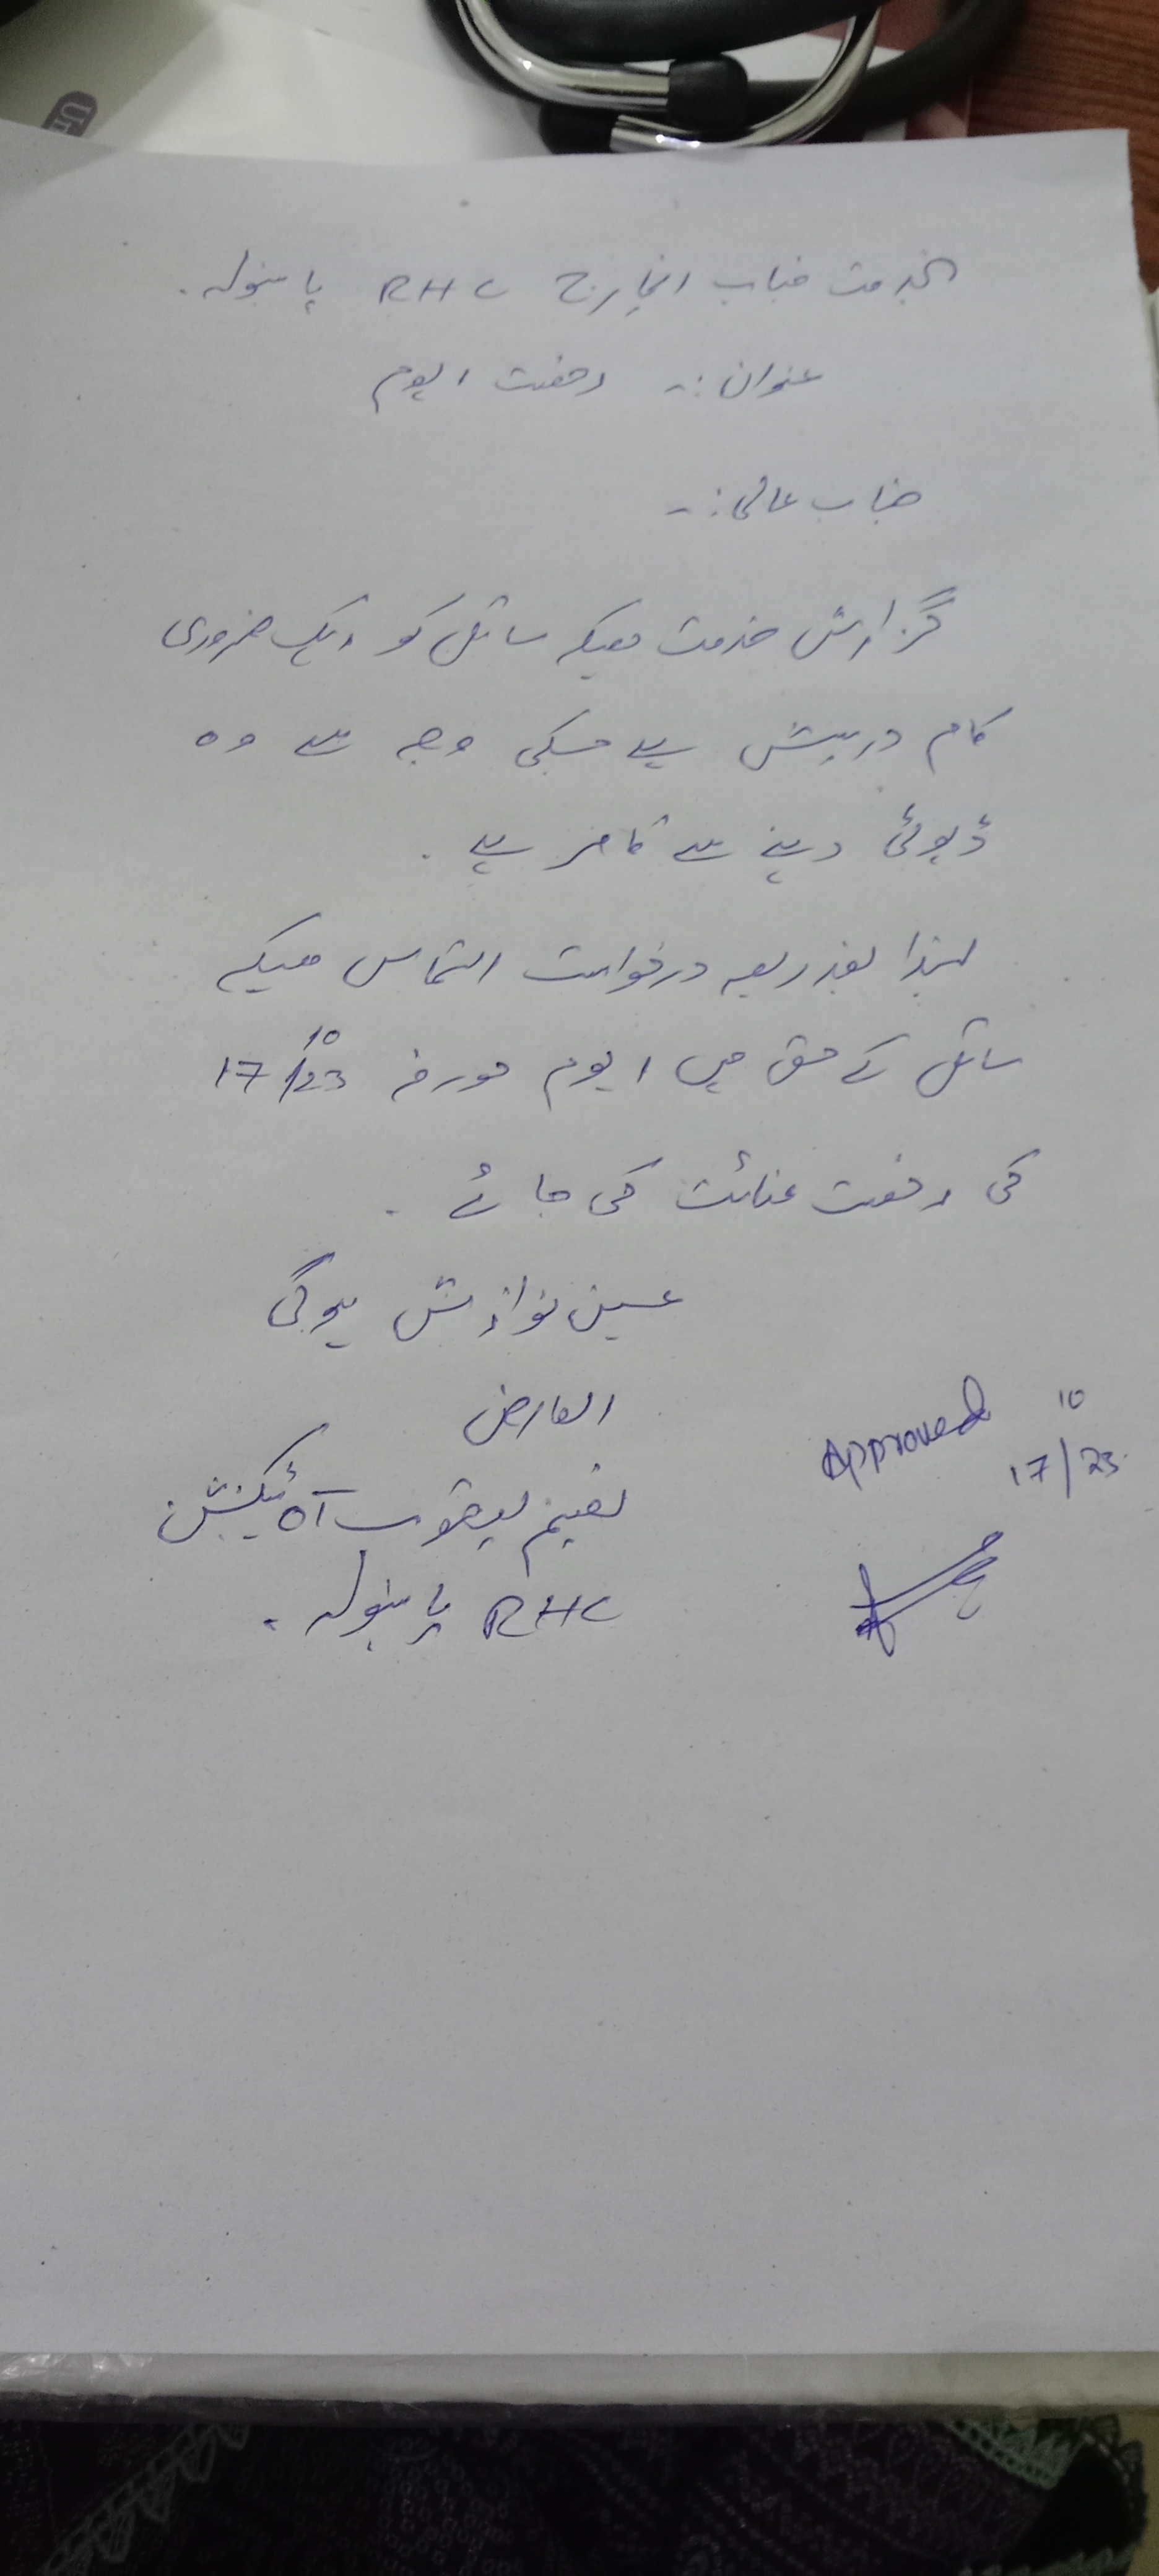 بخدمت جناب انچارج RHC پاہنولہ.
عنوان:- رخصت 1 یوم
جناب عالی:-
گزارش خدمت ہیکہ سائل کو ایک ضروری
کام درپیش ہے جسکی وجہ سے وہ
ڈیوٹی دینے سے قاصر ہے.
لہذا بذریعہ درخواست التماس ہیکے
سائل کے حق میں 1 یوم مورخہ 17/10/23
کی رخصت عنائت کی جائے.
عین نوازش ہوگی
العارض
Approved 10
17/23
یعقوب
RHC پاہنولہ.